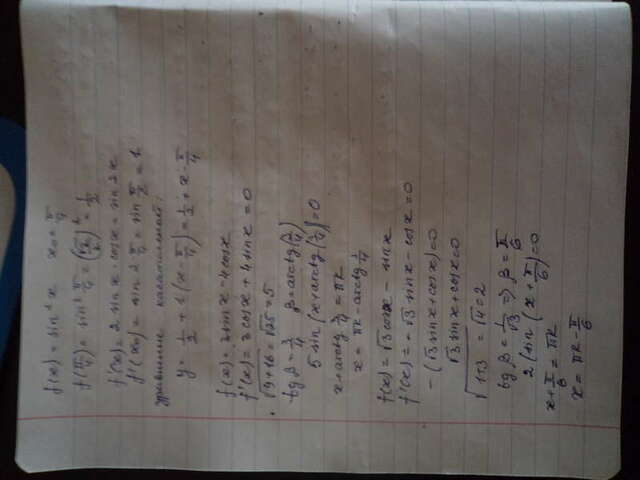 f(x) = sin² x x₀ = π/4
f(π/4) = sin² π/4 = (√2/2)² = 1/2
f'(x) = 2 sinx · cosx = sin 2x
f'(x₀) = sin 2 π/4 = sin π/2 = 1
уравнение касательной:
y = 1/2 + 1(x - π/4) = 1/2 + x - π/4
f(x) = 3 sinx - 4 cosx
f'(x) = 3 cosx + 4 sinx = 0
√9+16 = √25 = 5
tg β = 3/4 β = arctg(3/4)
5 sin(x + arctg(3/4)) = 0
x + arctg 3/4 = πk
x = πk - arctg 3/4
f(x) = √3 cosx - sinx
f'(x) = -√3 sinx - cosx = 0
-(√3 sinx + cosx) = 0
√3 sinx + cosx = 0
√1+3 = √4 = 2
tg β = 1/√3 => β = π/6
2(sin(x + π/6) = 0
x + π/6 = πk
x = πk - π/6